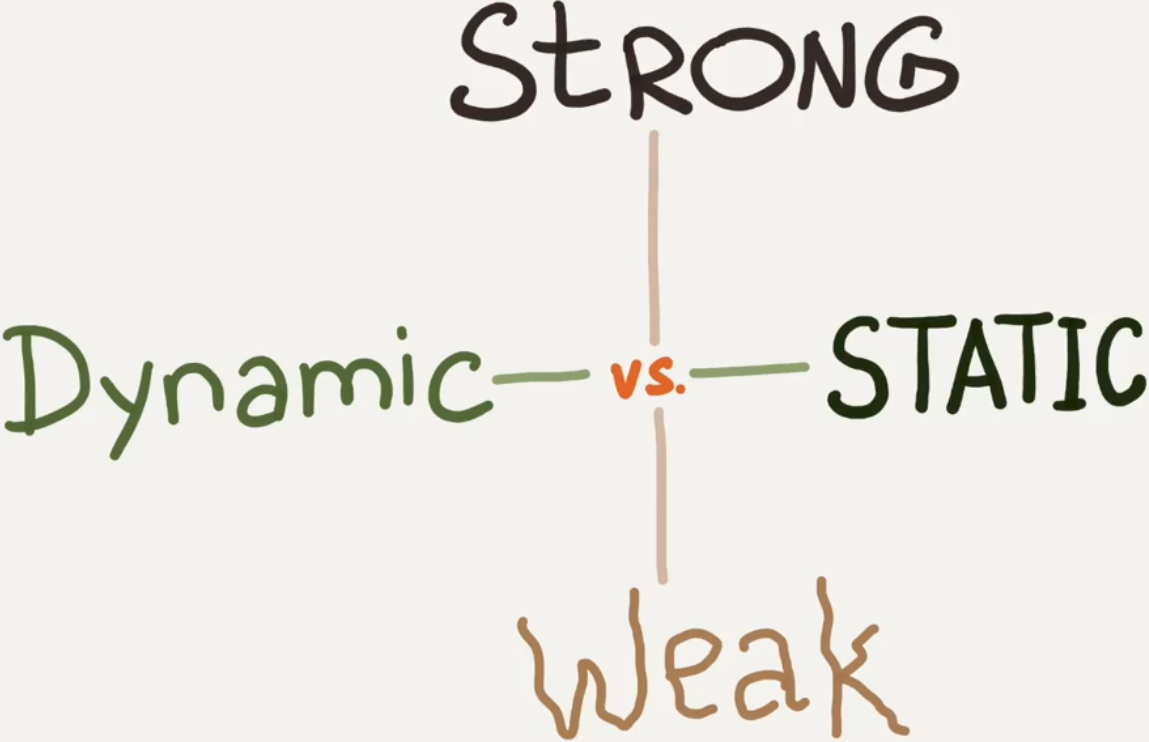 StRONG
Dynamic vs. STATIC
Weak